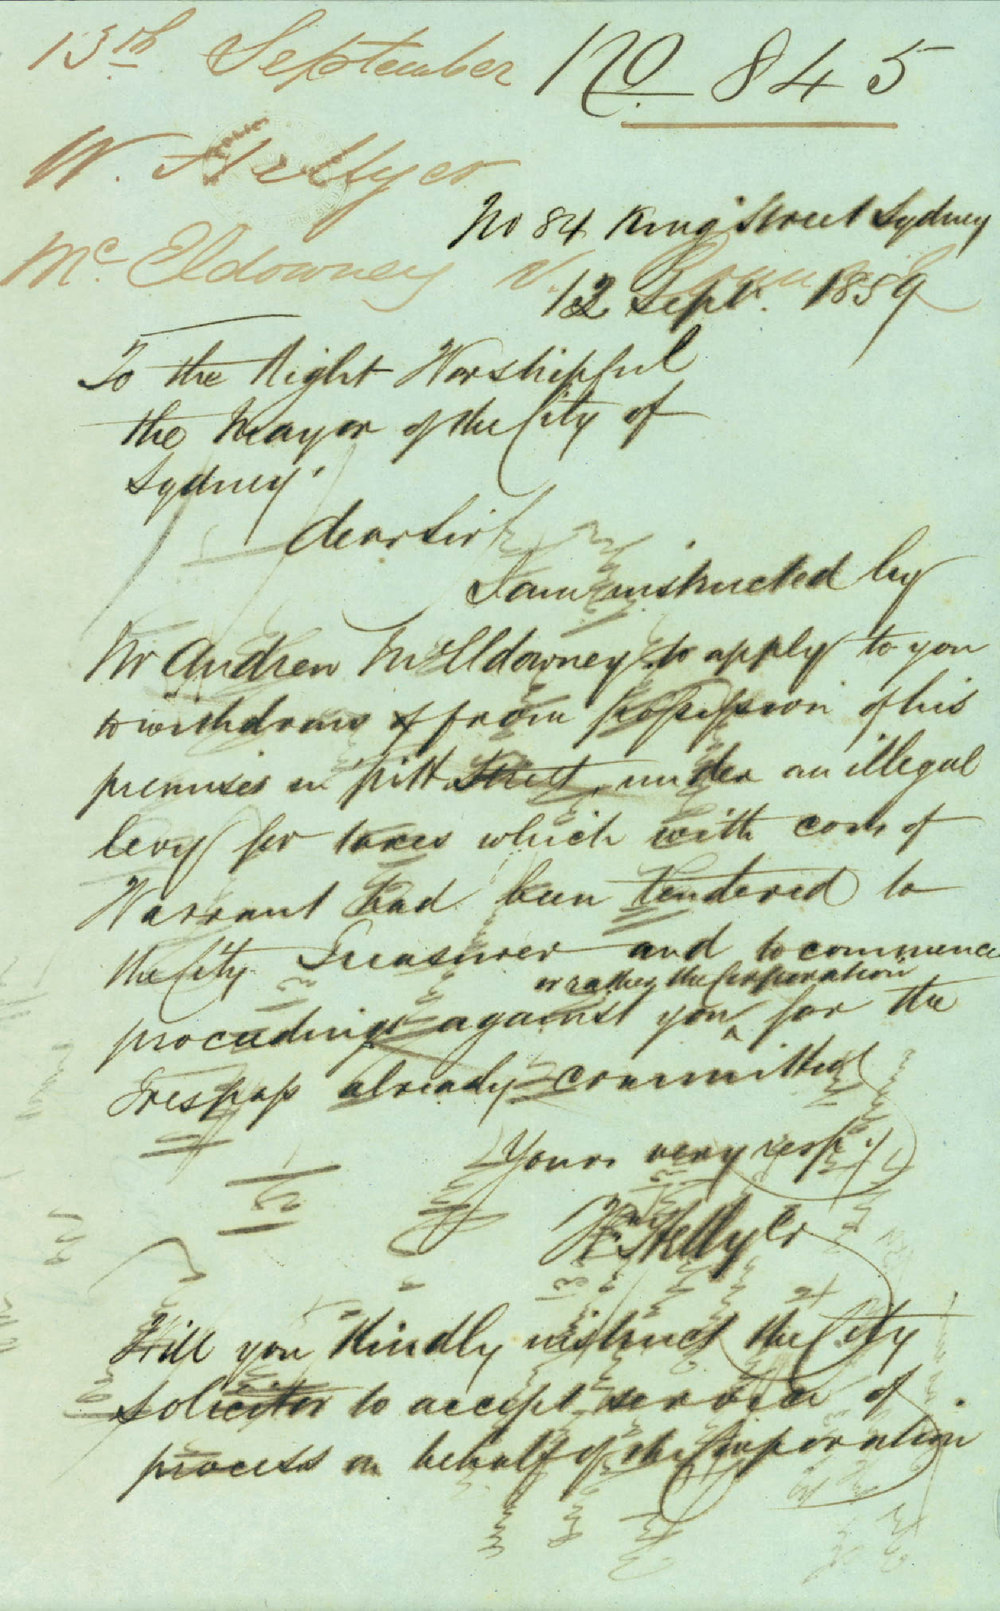 13th September No 845
W. Hellyer
McEldowney v.
No 84 King Street Sydney
12 Sept. 1859
To the Right Worshipful
the Mayor of the City of
Sydney
Dear Sir
I am instructed by
Mr Andrew McEldowney to apply to you
to withdraw from possession of his
premises in pitt Street, under an illegal
levy for taxes which with costs of
Warrant had been tendered to
the City Treasurer and to commence
or rather the Corporation
proceedings against you ^ for the
Trespass already committed
Yours very resp.
W. Hellyer
Will you Kindly instruct the City
Solicitor to accept service of
process on behalf of the Corporation